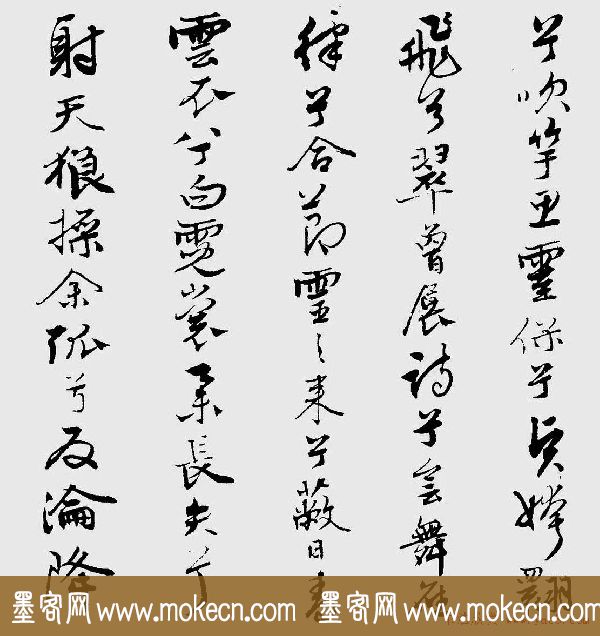 兮吹竽思靈保兮賢姱翾
飛兮翠曾展詩兮會舞應
律兮合節靈之來兮蔽日青
雲衣兮白霓裳舉長矢兮
射天狼操余弧兮反淪降
墨客网 www.mokecn.com 墨客网 www.mokecn.com 墨客网 www.mokecn.com